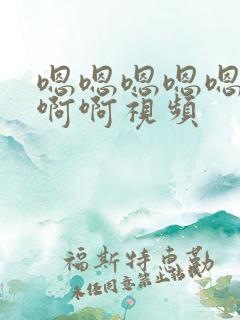 嗯嗯嗯嗯嗯
啊啊視頻
福斯特惠勒
未經同意禁止轉載